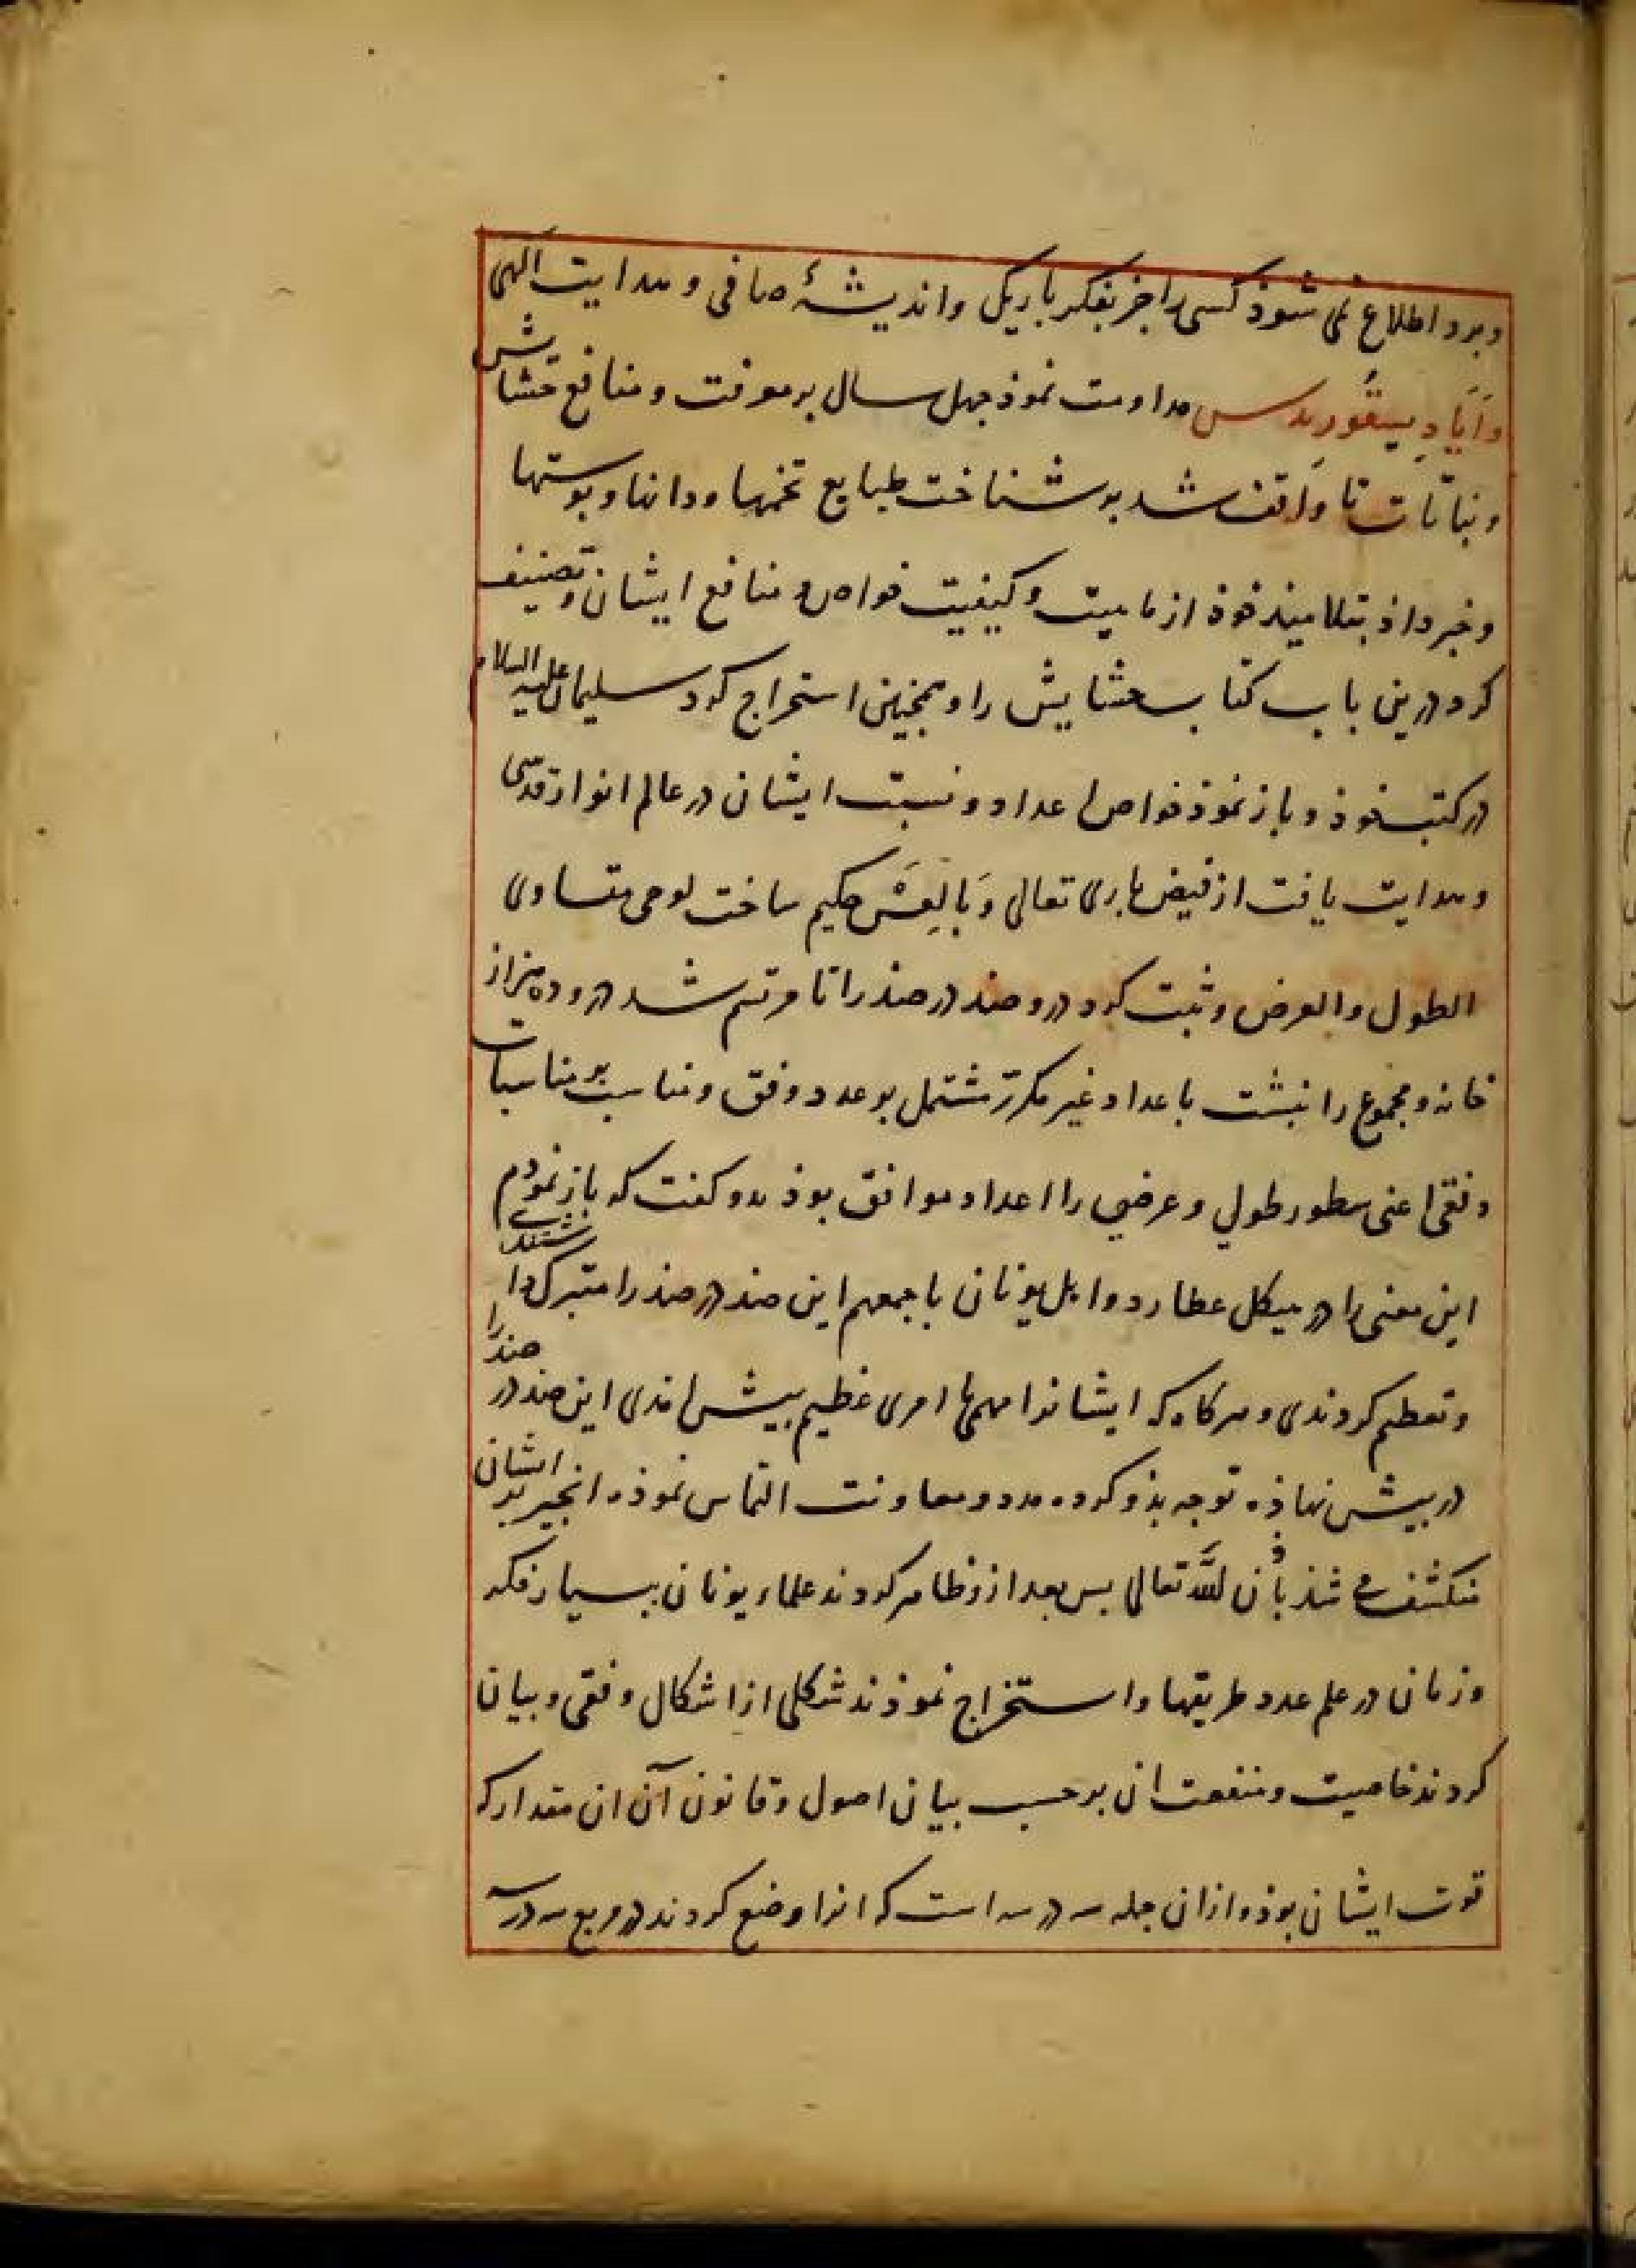 و برو اطلاع نمی شوذ کسی را جز بفکر باریک و اندیشهٔ صافی و هدایت الهی
و اَیَادِیسقُورِیدس مداومت نموذ جهل سال بر معرفت و منافع حشایش
و نباتات تا واقف شد بر شناخت طبایع تخمها و دانها و بوستها
و خبر داذ بتلامیذ خوذ از ماهیت و کیفیت خواص و منافع ایشان و تصنیف
کرد درین باب کتاب حشایش را و همجنین استخراج کرد سلیمان علیه السلام
در کتب خوذ و باز نموذ خواص اعداد و نسبت ایشان در عالم انوار قدسی
و هدایت یافت از فیض باری تعالی وَ بالِعَش حکیم ساخت لوحی متساوی
الطول والعرض و ثبت کرد درو صد در صذ را تا مرتسم شد درو ده هزار
خانه و مجموع را نبشت با عداد غیر مکرّر مشتمل بر عدد وفق و مناسب بر مناسبات
وفقی اعنی سطور طولي و عرضي را اعداد موافق بوذ و کفت که باز نمودم
این معنی را در هیکل عطارد و اهل یونان باجمعهم این صذ در صذ را متبرک داشتندی
و تعظیم کردندی و هرکاه که ایشانرا مهمی با امری عظیم بیش امذی این صذ در صذ را
در بیش نهاذه توجه بذو کرده مدد و معاونت التماس نموذه انجیر بر ایشان
منکشف می شذ باذن للّه تعالی بس بعد ازو ظاهر کردند علماء یونان ببسیار فکر
و زمان در علم عدد طریقها و استخراج نموذند شکلی از اشکال وفقی و بیان
کردند خاصیت و منفعت ان بر حسب بیان اصول و قانون آن ان مقدار که
قوت ایشان بوذ و ازان جمله سه در سه است که انرا وضع کردند در مربع سه در سه